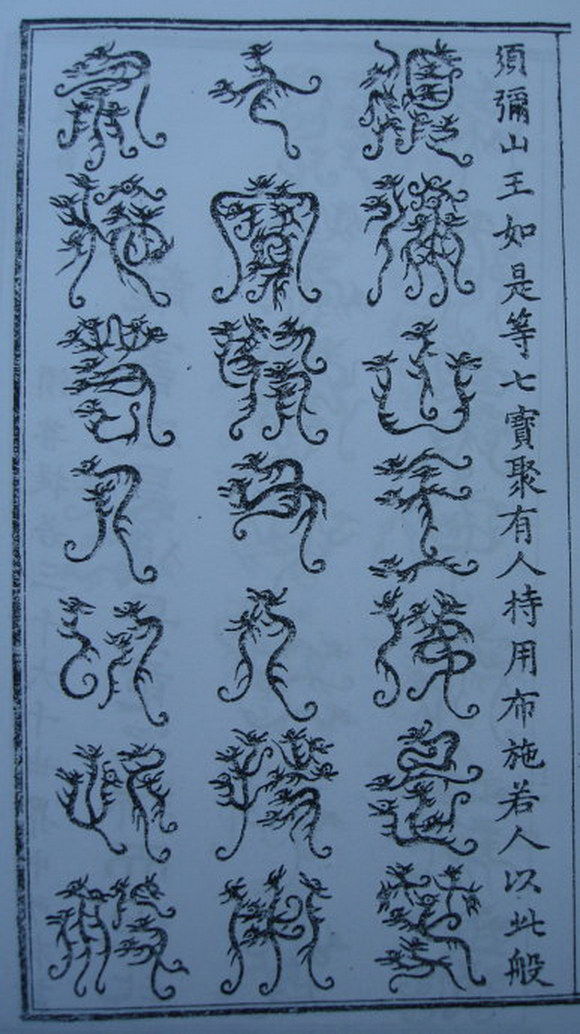 須彌山王如是等七寶聚有人持用布施若人以此般
須彌山王如是等
七寶聚有人持用
布施若人以此般